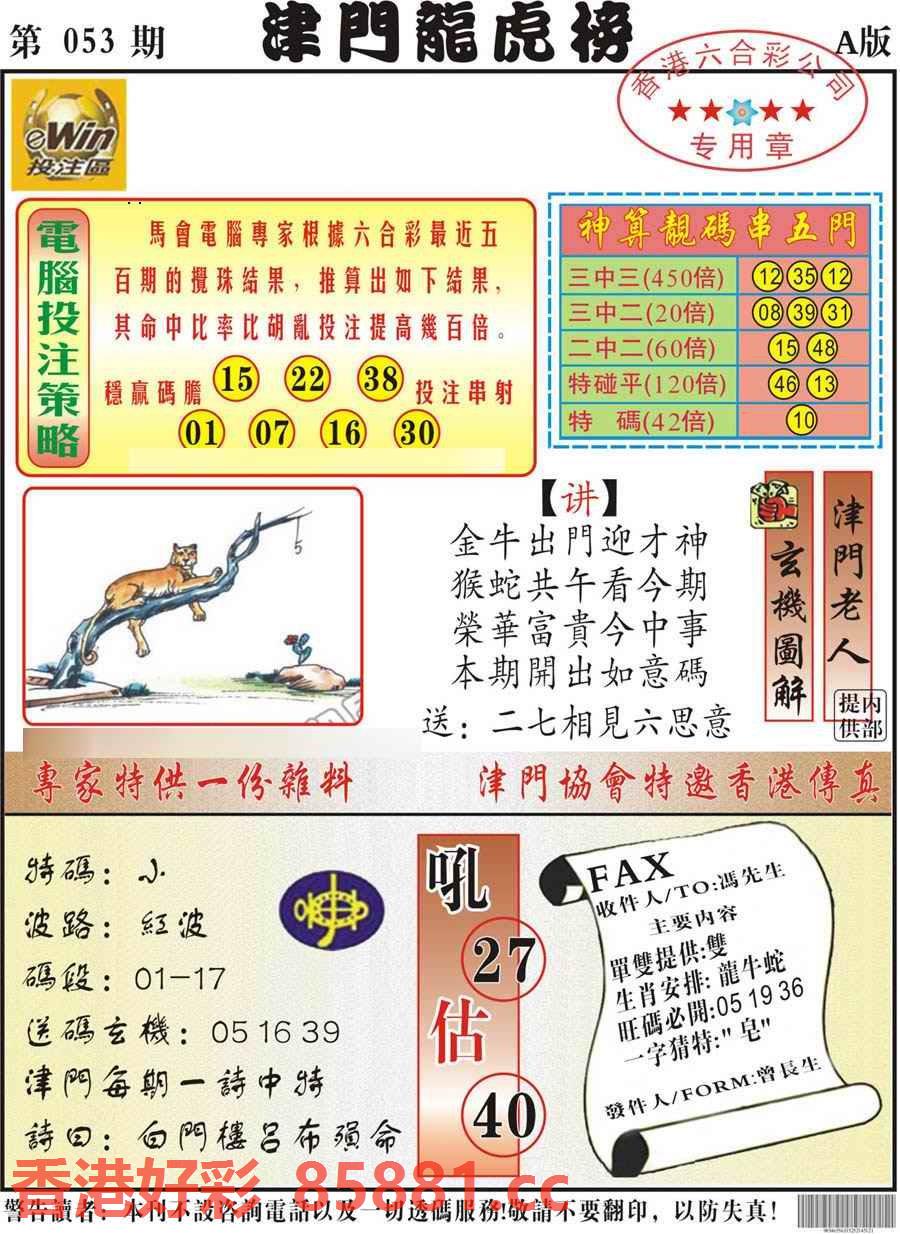 第 053 期
津門龍虎榜
A版
香港六合彩公司
专用章
eWin
投注區
電腦投注策略
馬會電腦專家根據六合彩最近五
百期的攪珠結果，推算出如下結果，
其命中比率比胡亂投注提高幾百倍。
穩贏碼膽 15 22 38 投注串射
01 07 16 30
神算靚碼串五門
三中三(450倍) 12 35 12
三中二(20倍) 08 39 31
二中二(60倍) 15 48
特碰平(120倍) 46 13
特 碼(42倍) 10
5
【讲】
金牛出門迎才神
猴蛇共午看今期
榮華富貴今中事
本期開出如意碼
送：二七相見六思意
玄機圖解
津門老人
内部
提供
專家特供一份雜料
津門協會特邀香港傳真
特碼：小
波路：紅波
碼段：01-17
送碼玄機：05 16 39
津門每期一詩中特
詩曰：白門樓呂布殞命
吼
27
估
40
FAX
收件人/TO:馮先生
主要内容
單雙提供:雙
生肖安排: 龍牛蛇
旺碼必開:05 19 36
一字猜特:" 皂"
發件人/FORM:曾長生
香港好彩 85881.cc
警告讀者：本刊不設咨詢電話以及一切透碼服務!敬請不要翻印，以防失真!